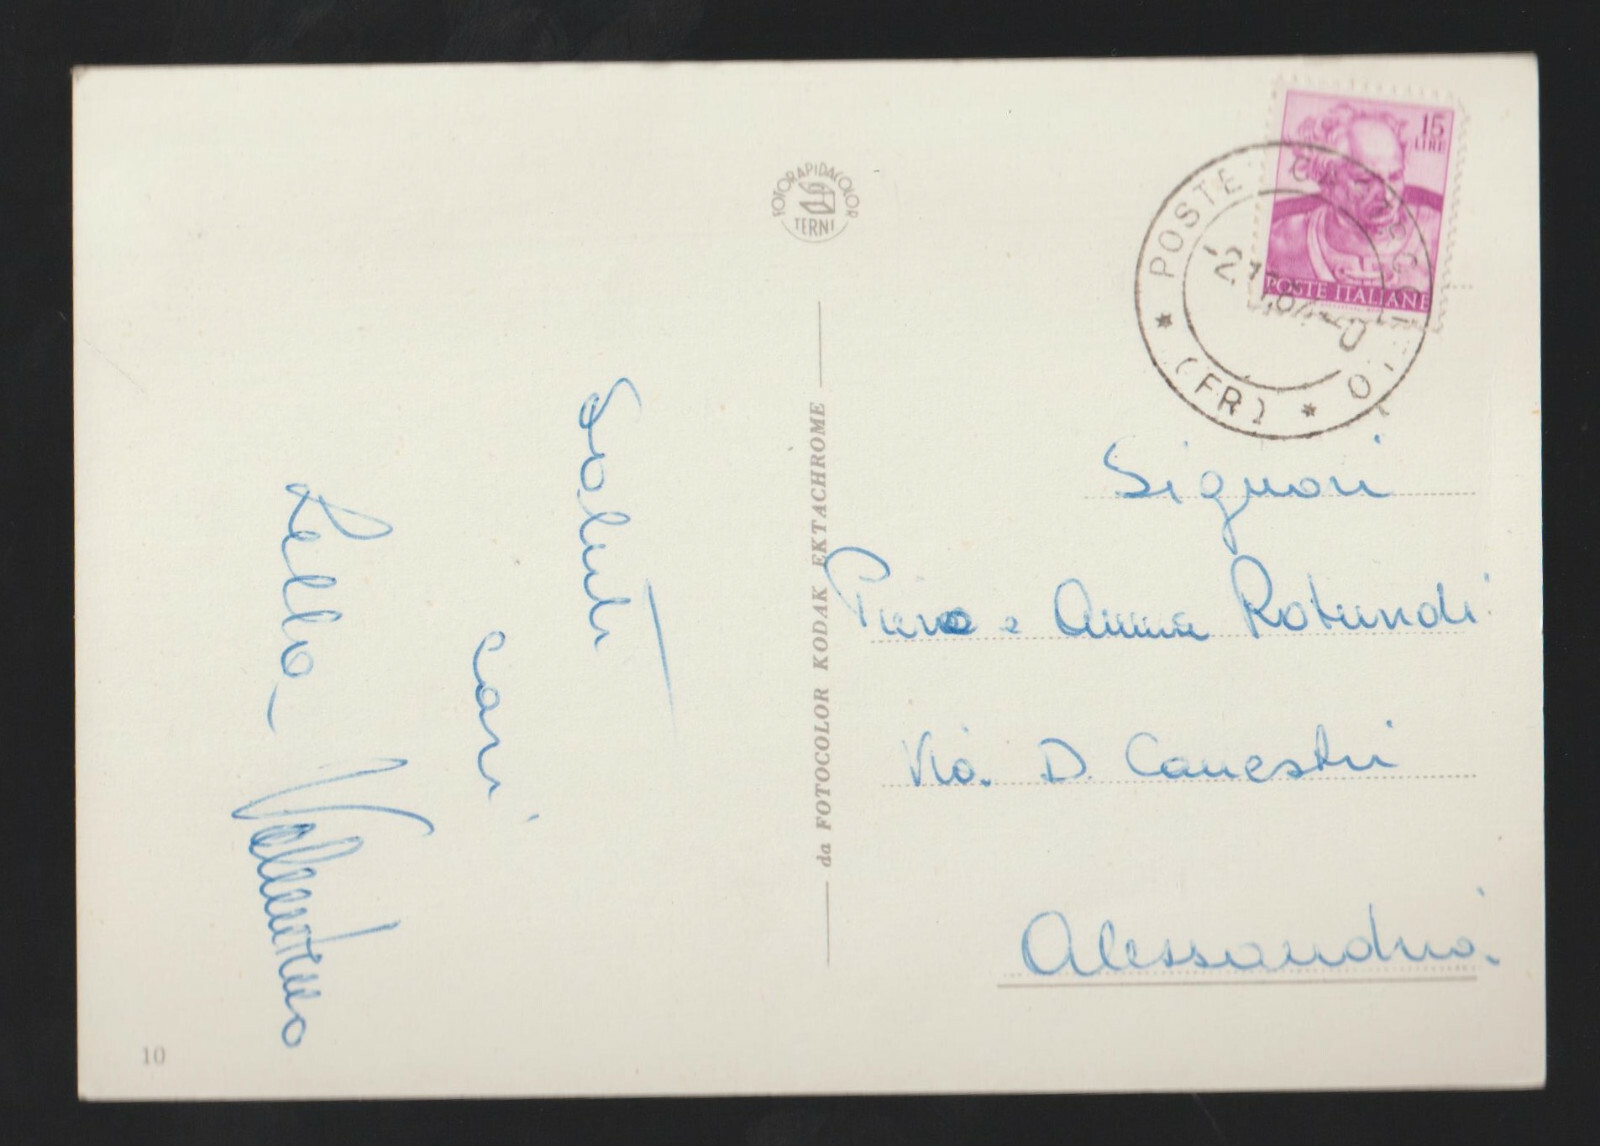 Saluti
cari
Lella - Valentino
10
FOTORAPIDACOLOR
TERNI
da FOTOCOLOR KODAK EKTACHROME
15
LIRE
POSTE ITALIANE
POSTE
(FR)
Signori
Piero e Anna Rotundi
Via D. Canestri
Alessandria